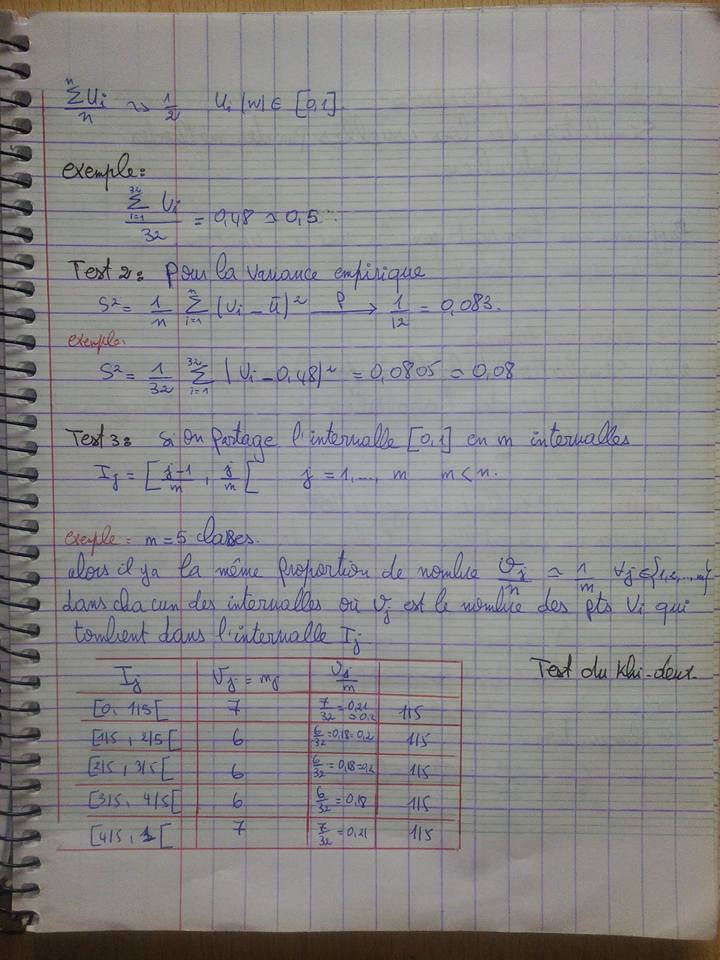 $\frac{\sum^{n} U_i}{n} \simeq \frac{1}{2}$ $U_i(w) \in [0,1]$.
exemple:
$\frac{\sum_{i=1}^{32} U_i}{32} = 0,48 \simeq 0,5$
Test 2: pour la variance empirique
$S^2 = \frac{1}{n} \sum_{i=1}^{n} (U_i - \bar{U})^2 \xrightarrow{P} \frac{1}{12} = 0,083.$
exemple:
$S^2 = \frac{1}{32} \sum_{i=1}^{32} (U_i - 0,48)^2 = 0,0805 \simeq 0,08$
Test 3: si on partage l'intervalle [0,1] en m intervalles
$I_j = [\frac{j-1}{m}, \frac{j}{m}[$ j = 1,..., m m < n.
exeple = m=5 classes.
alors il ya la même proportion de nombre $\frac{v_j}{n} \simeq \frac{1}{m}$ ∀j∈{1,2,...,m}
dans chacun des intervalles où $v_j$ est le nombre des pts $U_i$ qui
tombent dans l'intervalle $I_j$
Test du khi-deux.
$I_j$ $v_j = m_j$ $\frac{v_j}{m}$
[0, 1/5[ 7 $\frac{7}{32}$ = 0,21 ≃ 0,2 1/5
[1/5, 2/5[ 6 $\frac{6}{32}$ = 0,18 = 0,2 1/5
[2/5, 3/5[ 6 $\frac{6}{32}$ = 0,18 = 0,2 1/5
[3/5, 4/5[ 6 $\frac{6}{32}$ = 0,18 1/5
[4/5, 1[ 7 $\frac{7}{32}$ = 0,21 1/5